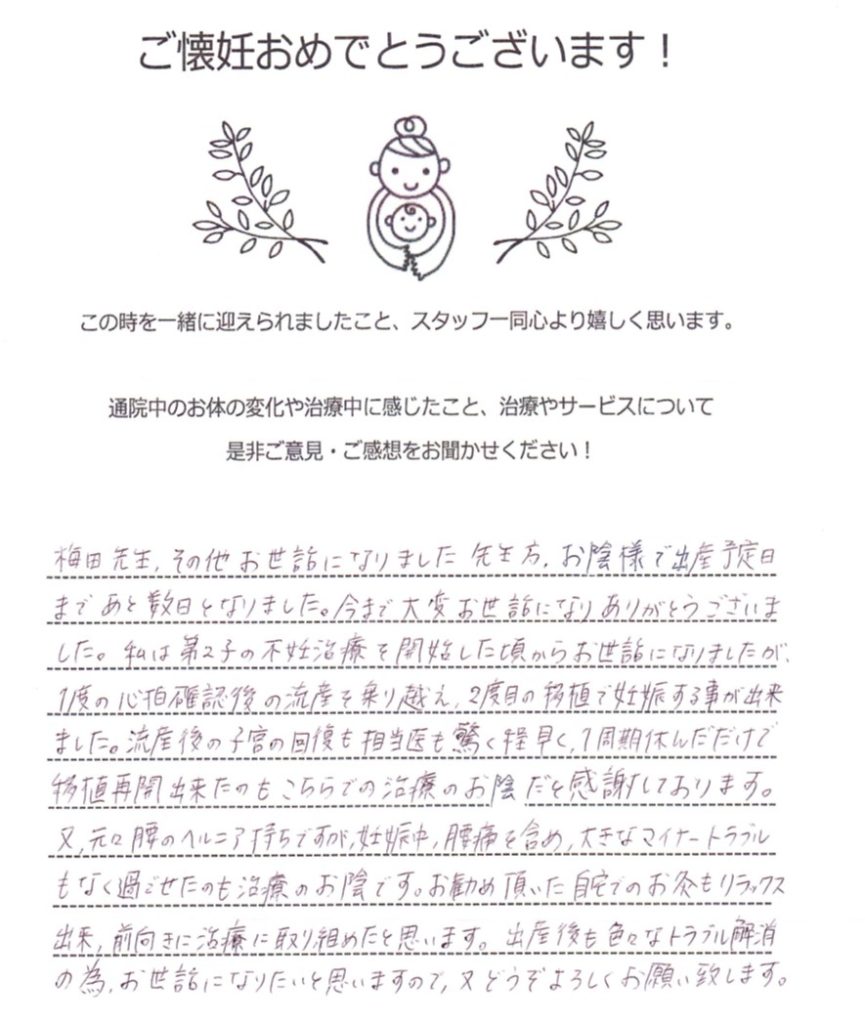 ご懐妊おめでとうございます！
この時を一緒に迎えられましたこと、スタッフ一同心より嬉しく思います。
通院中のお体の変化や治療中に感じたこと、治療やサービスについて
是非ご意見・ご感想をお聞かせください！
梅田先生、その他お世話になりました先生方、お陰様で出産予定日
まであと数日となりました。今まで大変お世話になりありがとうございま
した。私は第2子の不妊治療を開始した頃からお世話になりましたが、
1度の心拍確認後の流産を乗り越え、2度目の移植で妊娠する事が出来
ました。流産後の子宮の回復も担当医も驚く程早く、1周期休んだだけで
移植再開出来たのもこちらでの治療のお陰だと感謝しております。
又、元々腰のヘルニア持ちですが、妊娠中、腰痛を含め、大きなマイナートラブル
もなく過ごせたのも治療のお陰です。お勧め頂いた自宅でのお灸もリラックス
出来、前向きに治療に取り組めたと思います。出産後も色々なトラブル解消
の為、お世話になりたいと思いますので、又どうぞよろしくお願い致します。